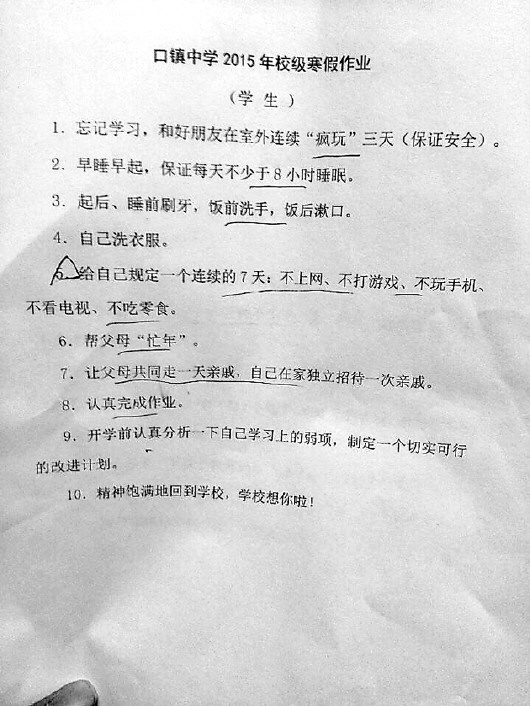 口镇中学2015年校级寒假作业
（学 生）
1. 忘记学习，和好朋友在室外连续“疯玩”三天（保证安全）。
2. 早睡早起，保证每天不少于8小时睡眠。
3. 起后、睡前刷牙，饭前洗手，饭后漱口。
4. 自己洗衣服。
5. 给自己规定一个连续的7天：不上网、不打游戏、不玩手机、
不看电视、不吃零食。
6. 帮父母“忙年”。
7. 让父母共同走一天亲戚，自己在家独立招待一次亲戚。
8. 认真完成作业。
9. 开学前认真分析一下自己学习上的弱项，制定一个切实可行
的改进计划。
10. 精神饱满地回到学校，学校想你啦！